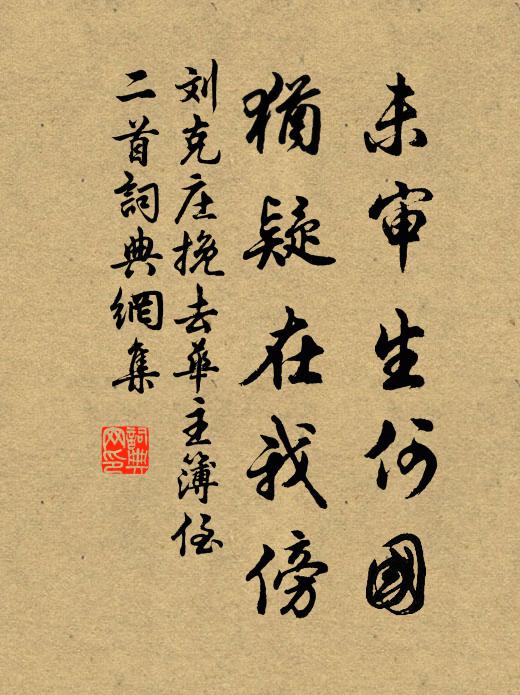 未审生何國
猶疑在我傍
刘克庄挽去華主簿侄
二首詞典網集
詞典网印